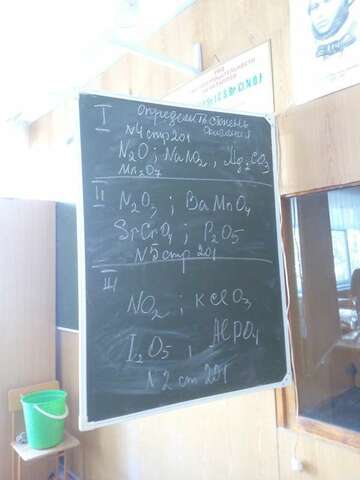 I Определить степень
окисления
N4 стр 201
N₂O ; NaNO₂, ; Ag₂CO₃
Mn₂O₇
II N₂O₃ ; BaMnO₄
SrCrO₄ ; P₂O₅
N5 стр 201
III
NO₂ ; KClO₃
I₂O₅ , AlPO₄
N 2 ст 201